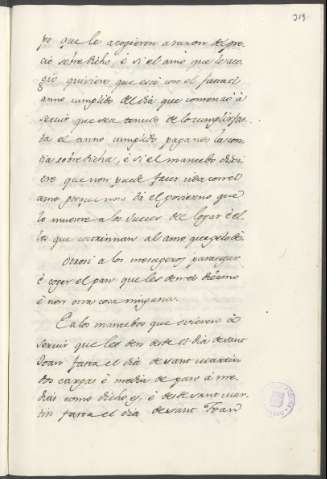 319
po que le acogieron a razon del pre-
cio sobre dicho, é si el amo que le aco-
gió quisiere que esté con el fasta el
anno cumplido del dia que comenzó á
servir que sea tenudo de lo cumplir fas-
ta el anno cumplido pagando la con-
tia sobre dicha, é si el mancebo dixi-
ere que non puede facer vida con el
amo porque non dá el govierno que
lo muestre a los Jueces del logar é el-
los que costrinnan al amo que gelo dé.
Otrosi a los mesegueros para segar
é coger el pan que les den el diezmo
é non otra cosa ninguna.
E a los mancebos que ovieren á
servir que les den desde el dia de sant
Joan fasta el dia de sant martin
dos cargas é media de pan á me-
dias como dicho es, é desde sant mar-
tin fasta el dia de sant Joan